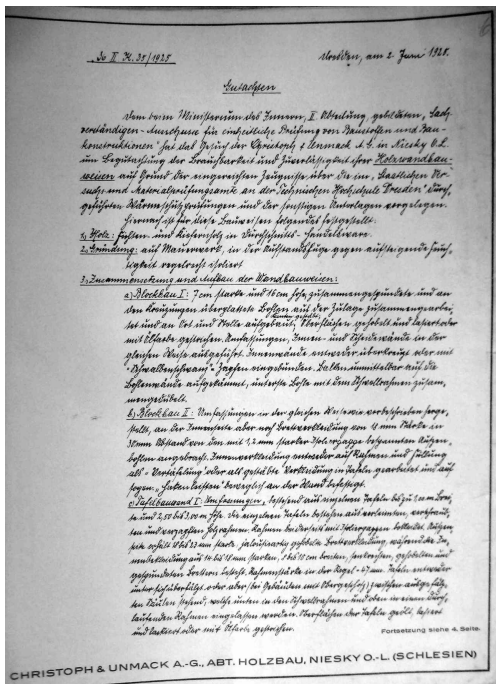 No II H. 35/1925
Dresden, am 2. Juni 1925.
Gutachten
Dem beim Ministerium des Innern, II. Abteilung, gebildeten „Sach-
verständigen-Ausschuss für einheitliche Prüfung von Baustoffen und Bau-
konstruktionen" hat das Gesuch der Christoph & Unmack A.G. in Niesky O.L.
um Begutachtung der Brauchbarkeit und Zuverlässigkeit ihrer Holzwandbau-
weisen auf Grund der eingereichten Zeugnisse über die im „Staatlichen Ver-
suchs- und Materialprüfungsamte an der Technischen Hochschule Dresden" durch-
geführten Wärmeschutzprüfungen und der sonstigen Unterlagen vorgelegen.
Hiernach ist für diese Bauweisen folgendes festgestellt:
1.) Holz: Fichten- und Kiefernholz in Durchschnitts-Handelsware.
2.) Gründung: auf Mauerwerk, in der Aufstandsfuge gegen aufsteigende Feuch-
tigkeit regelrecht isoliert
3.) Zusammensetzung und Aufbau der Wandbauweisen:
a) Blockbau I: 7 cm starke und 16 cm hohe, zusammengespundete und an
den Kreuzungen überplattete Bohlen auf der Zulage zusammengearbei-
tet und an Ort und Stelle aufgebaut. Oberflächen gehobelt und lasiert oder
mit Ölfarbe gestrichen. Umfassungen, Innen- und Scheidewände in der
gleichen Weise ausgeführt. Innenwände entweder überkreuzt oder mit
"Schwalbenschwanz" Zapfen eingebunden. Balken unmittelbar auf die
Bohlenwände aufgekämmt, unterste Bohle mit dem Schwellrahmen zusam-
mengedübelt.
b) Blockbau II: Umfassungen in der gleichen Weise wie vorbeschrieben herge-
stellt, an der Innenseite aber noch Brettverkleidung von mm Stärke in
30 mm Abstand von den mit 1,2 mm starker Isolierpappe bespannten Außen-
bohlen angebracht. Innenverkleidung entweder auf Rahmen und Füllung
als "Vertäfelung" oder als gestäbte Verkleidung in Tafeln gearbeitet und auf
sogen. "Hakenleisten" beweglich an der Wand befestigt.
c) Tafelbauwand I: Umfassungen, bestehend aus einzelnen Tafeln bis zu m Brei-
te und 2,50 bis 3,00 m Höhe. Die einzelnen Tafeln bestehen aus verleimten,
ten und verzapften Holzrahmen. Rahmen beiderseits mit Isolierpappen bekleidet. Außen-
seite erhält 18 bis 22 mm starke, jalousieartig gehobelte Brettverkleidung, während die In-
nenbekleidung aus 14 bis 18 mm starken, 8 bis 10 cm breiten, senkrechten, gehobelten und
gespundeten Brettern besteht. Rahmenstärke in der Regel mm. Tafeln entweder
unter sich überfälzt oder aber (bei Gebäuden mit Obergeschoß) zwischen aufgestell-
ten Säulen stehend, welche unten in den Schwellrahmen und oben in einem durch-
laufenden Rahmen eingelassen werden. Oberflächen der Tafeln geölt, lasiert
und lackiert oder mit Ölfarbe gestrichen.
Fortsetzung siehe 4. Seite.
CHRISTOPH & UNMACK A.-G., ABT. HOLZBAU, NIESKY O.-L. (SCHLESIEN)